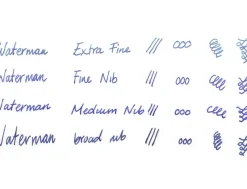 Waterman Extra Fine
Waterman Fine Nib
Waterman Medium Nib
Waterman broad nib